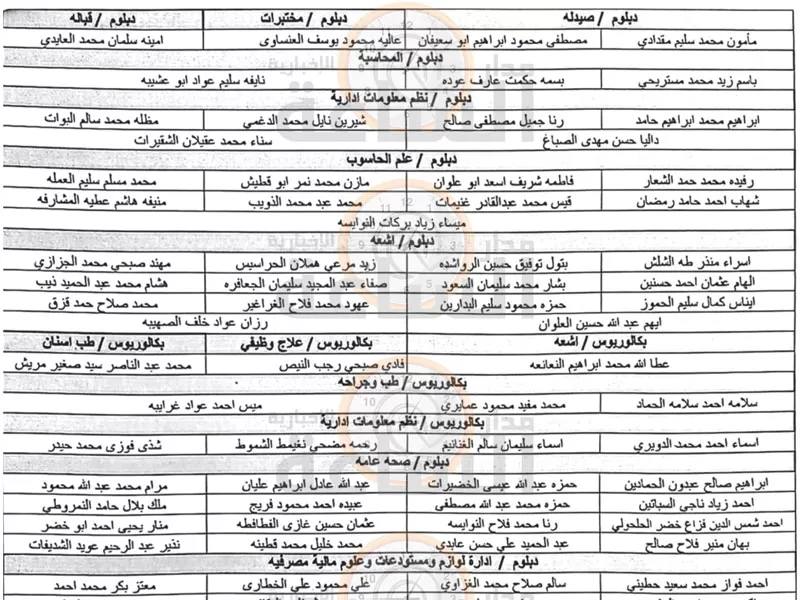 دبلوم / صيدله دبلوم / مختبرات دبلوم / قباله
مأمون محمد سليم مقدادي مصطفى محمود ابراهيم ابو سعيفان عاليه محمود يوسف العنساوى امينه سلمان محمد العابدي
دبلوم / المحاسبة
باسم زيد محمد مستريحي بسمه حكمت عارف عوده نايفه سليم عواد ابو عشيبه
دبلوم / نظم معلومات ادارية
ابراهيم محمد ابراهيم حامد رنا جميل مصطفى صالح شيرين نايل محمد الدغمي مظله محمد سالم البوات
داليا حسن مهدى الصباغ سناء محمد عقيلان الشقيرات
دبلوم / علم الحاسوب
رفيده محمد حمد الشعار فاطمه شريف اسعد ابو علوان مازن محمد نمر ابو قطيش محمد مسلم سليم العمله
شهاب احمد حامد رمضان قيس محمد عبدالقادر غنيمات محمد عبد محمد الذويب منيفه هاشم عطيه المشارفه
ميساء زياد بركات النوايسه
دبلوم / اشعه
اسراء منذر طه الشلش بتول توفيق حسين الرواشده زيد مرعي هملان الحراسيس مهند صبحي محمد الجزازي
الهام عثمان احمد حسنين بشار محمد سليمان السعود صفاء عبد المجيد سليمان الجعافره هشام محمد عبد الحميد ذيب
ايناس كمال سليم الحموز حمزه محمود سليم البدارين عهود محمد فلاح الغراغير محمد صلاح حمد قزق
ايهم عبد الله حسين العلوان رزان عواد خلف الصهيبه
بكالوريوس / اشعه بكالوريوس / علاج وظيفي بكالوريوس / طب اسنان
عطا الله محمد ابراهيم النعانعه فادي صبحي رجب النيص محمد عبد الناصر سيد صغير مريش
بكالوريوس / طب وجراحه
سلامه احمد سلامه الحماد محمد مفيد محمود عمايري ميس احمد عواد غرايبه
بكالوريوس / نظم معلومات ادارية
اسماء احمد محمد الدويري اسماء سليمان سالم الغنانيم رحمه مضحي نغيمط الشموط شذى فوزى محمد حيدر
دبلوم / صحه عامه
ابراهيم صالح عبدون الحمادين حمزه عبد الله عيسى الخضيرات عبد الله عادل ابراهيم عليان مرام محمد عبد الله محمود
احمد زياد ناجي السباتين حمزه محمد عبد الله مصطفى عبيده احمد محمود فريج ملك بلال حامد النمروطي
احمد شمس الدين قزاع خضر الحلحولي رنا محمد فلاح النوايسه عثمان حسين غازى الفطافطه منار يحيى احمد ابو خضر
بهان منير فلاح صالح عبد الحميد علي حسن عابدي محمد خليل محمد قطينه نذير عبد الرحيم عويد الشديفات
دبلوم / ادارة لوازم ومستودعات وعلوم مالية مصرفيه
احمد فواز محمد سعيد حطيني سالم صلاح محمد الغزاوي علي محمود علي الخطارى معتز بكر محمد احمد